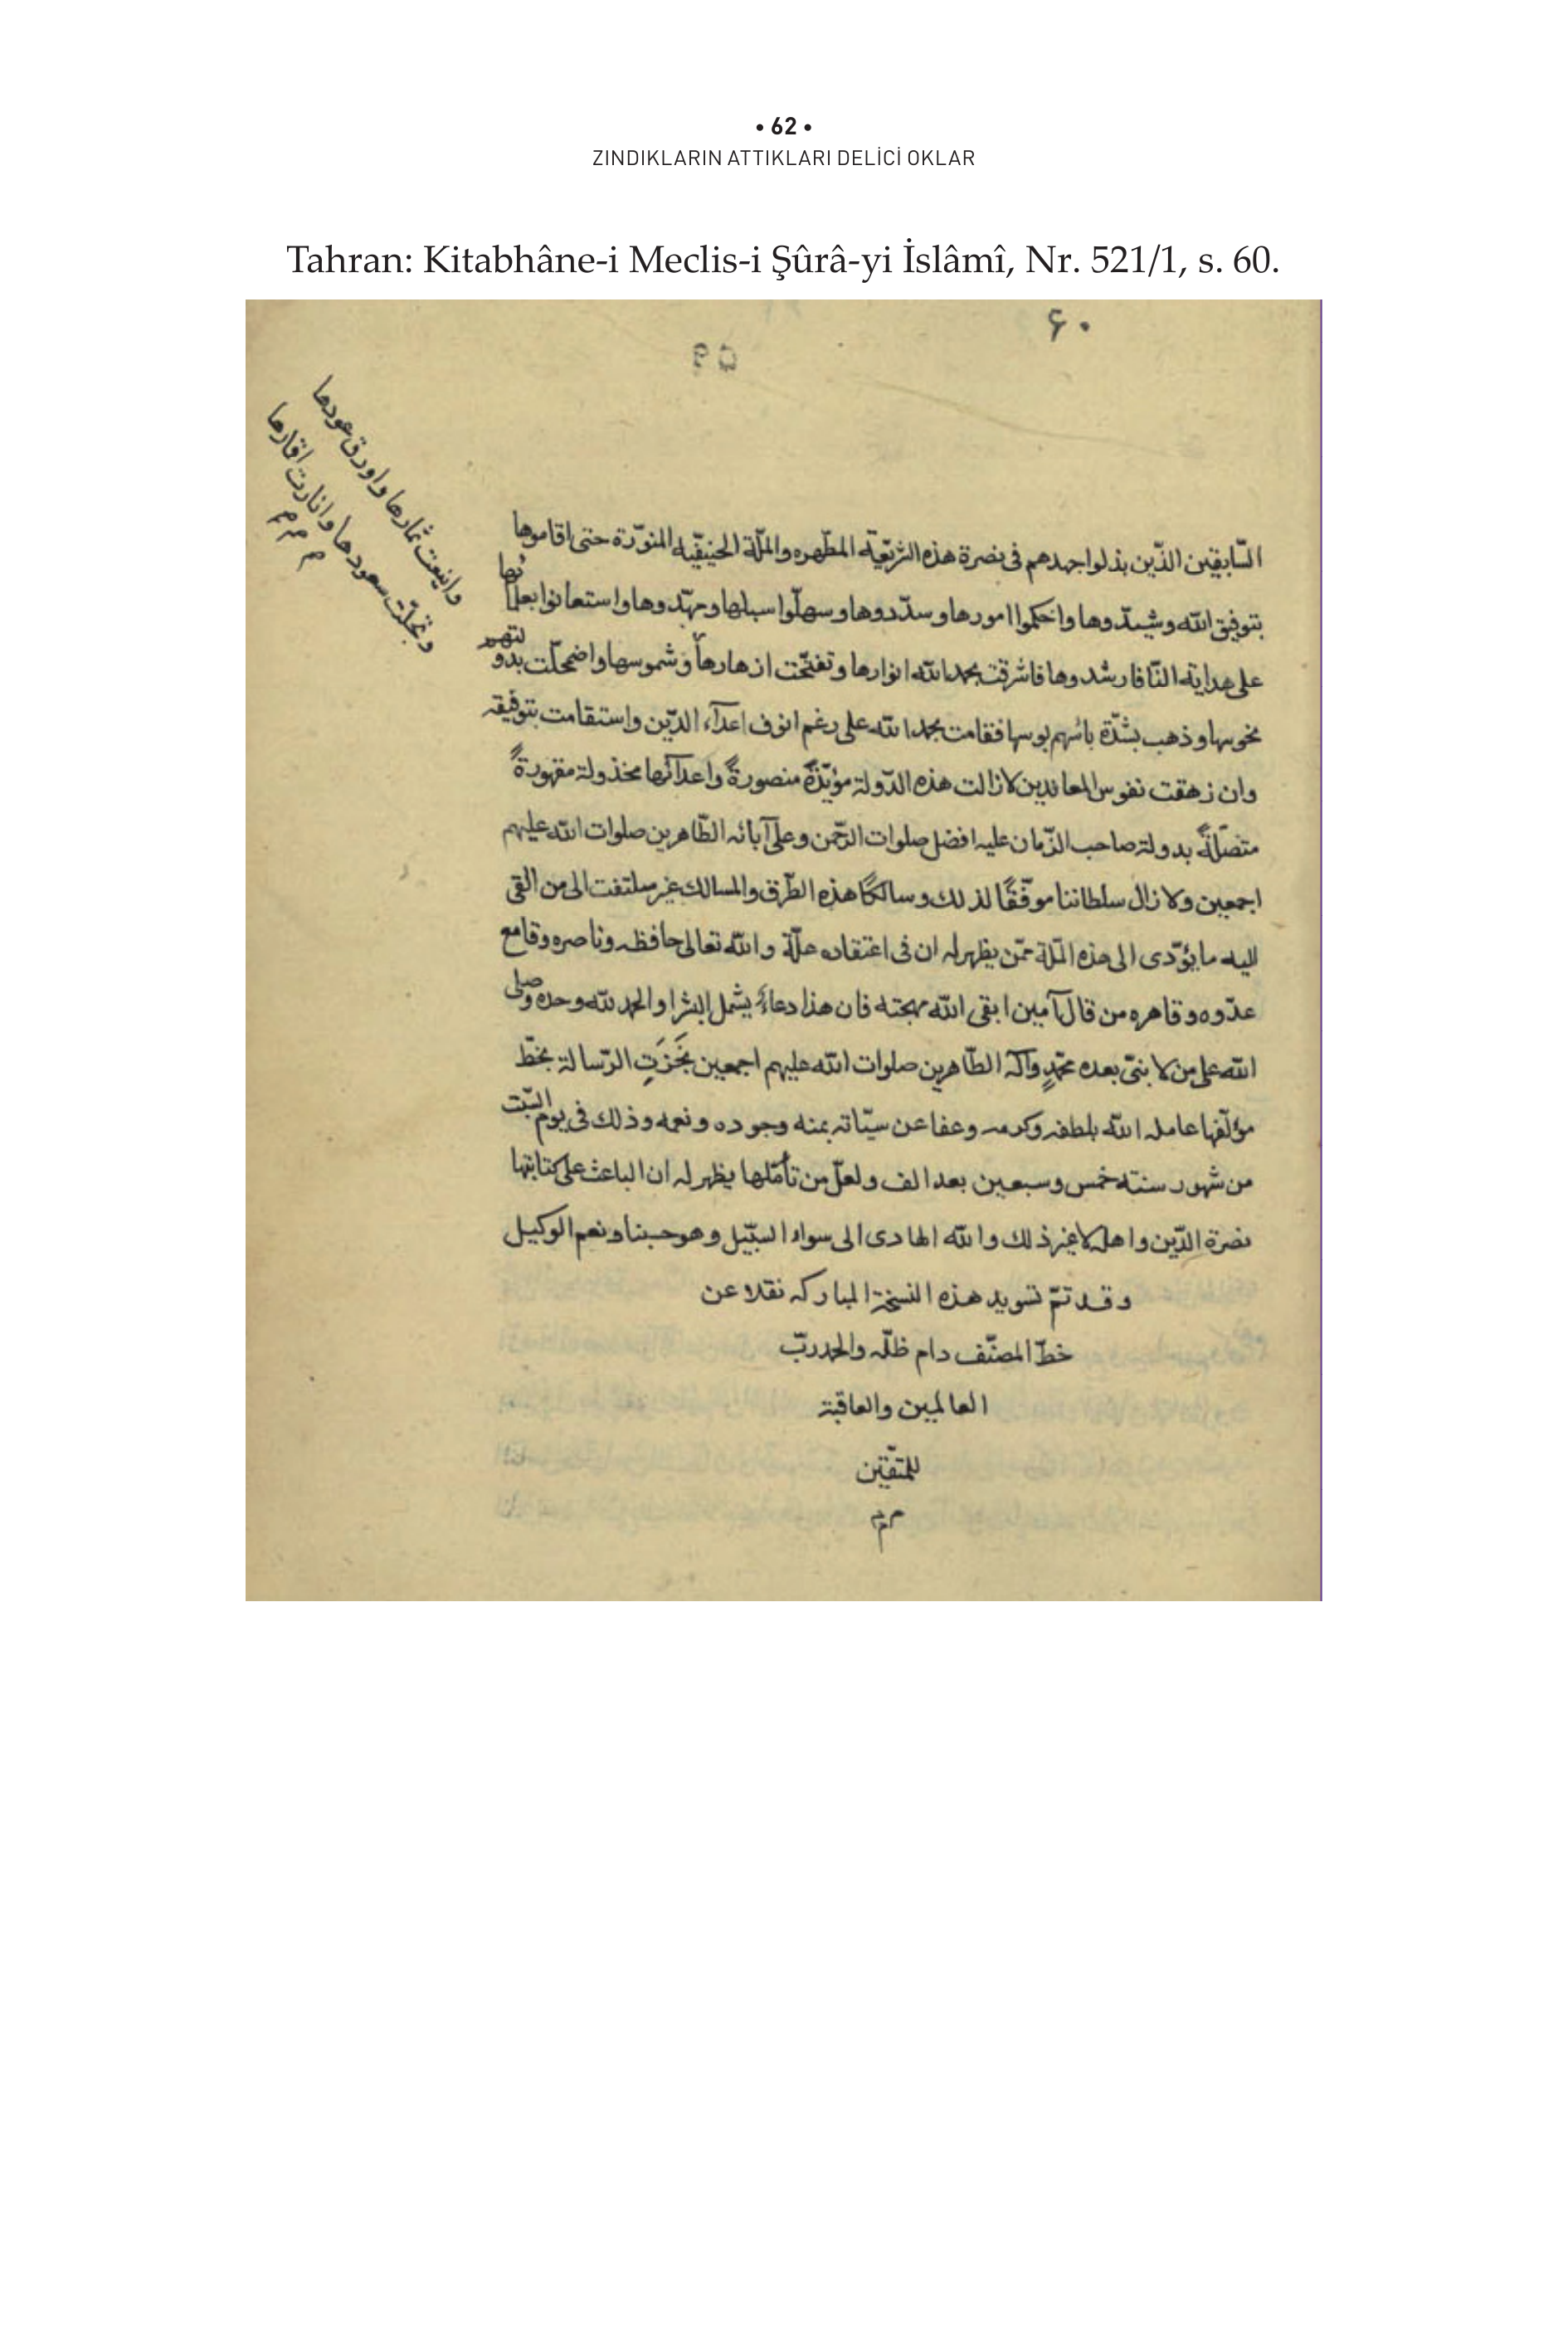 • 62 •
ZINDIKLARIN ATTIKLARI DELİCİ OKLAR
Tahran: Kitabhâne-i Meclis-i Şûrâ-yi İslâmî, Nr. 521/1, s. 60.
۶۰
واينعت ثمارها واورق عودها
وتجلّت سعودها وانارت اقمارها
م م م
السّابقين الذّين بذلوا جهدهم فى نصرة هذه الشّريعة المطهره والملّة الحنيفيّه المنوّرة حتى اقاموها
بتوفيق الله وشيّدوها واحكموا امورها وسدّدوها وسهلّوا سبلها ومهّدوها واستعانوا بعلمائها
على هداية النّا فارشدوها فاشرقت بحمد الله انوارها وتفتّحت ازهارها وشموسها واضمحلّت بدولتهم
نحوسها وذهب بشدّة باسهم بوسها فقامت بحمد الله على رغم انوف اعدآء الدّين واستقامت بتوفيقه
وان زهقت نفوس المعاندين لا زالت هذه الدّولة مؤيّدةً منصورةً واعدآئها مخذولة مقهورةً
متصّلةً بدولة صاحب الزّمان عليه افضل صلوات الرّحمن وعلى آبائه الطّاهرين صلوات الله عليهم
اجمعين ولا زال سلطاننا موفّقًا لذلك وسالكًا هذه الطّرق والمسالك غير ملتفت الى من القى
اليه ما يؤدّى الى هذه الملّة ممّن يظهر له ان فى اعتقاده علّة والله تعالى حافظه وناصره وقامع
عدّوه وقاهره من قال آمين ابقى الله مهجته فان هذا دعاءً يشمل البشرا والحمد لله وحده وصلى
الله على من لا نبىّ بعده محمّدٍ وآله الطّاهرين صلوات الله عليهم اجمعين نَجَزَتِ الرّسالة بخطّ
مؤلّفها عامله الله بلطفه وكرمه وعفا عن سيّاته بمنه وجوده ونعمه وذلك فى يوم السّبت
من شهور سنته خمس وسبعين بعد الف ولعلّ من تأمّلها يظهر له ان الباعث على كتابتها
نصرة الدّين واهله لا غير ذلك والله الهادى الى سواء السّبيل وهو حسبنا ونعم الوكيل
وقد تمّ تسويد هذه النسخة المباركه نقلا عن
خطّ المصنّف دام ظلّه والحمد ربّ
العالمين والعاقبة
للمتّقين